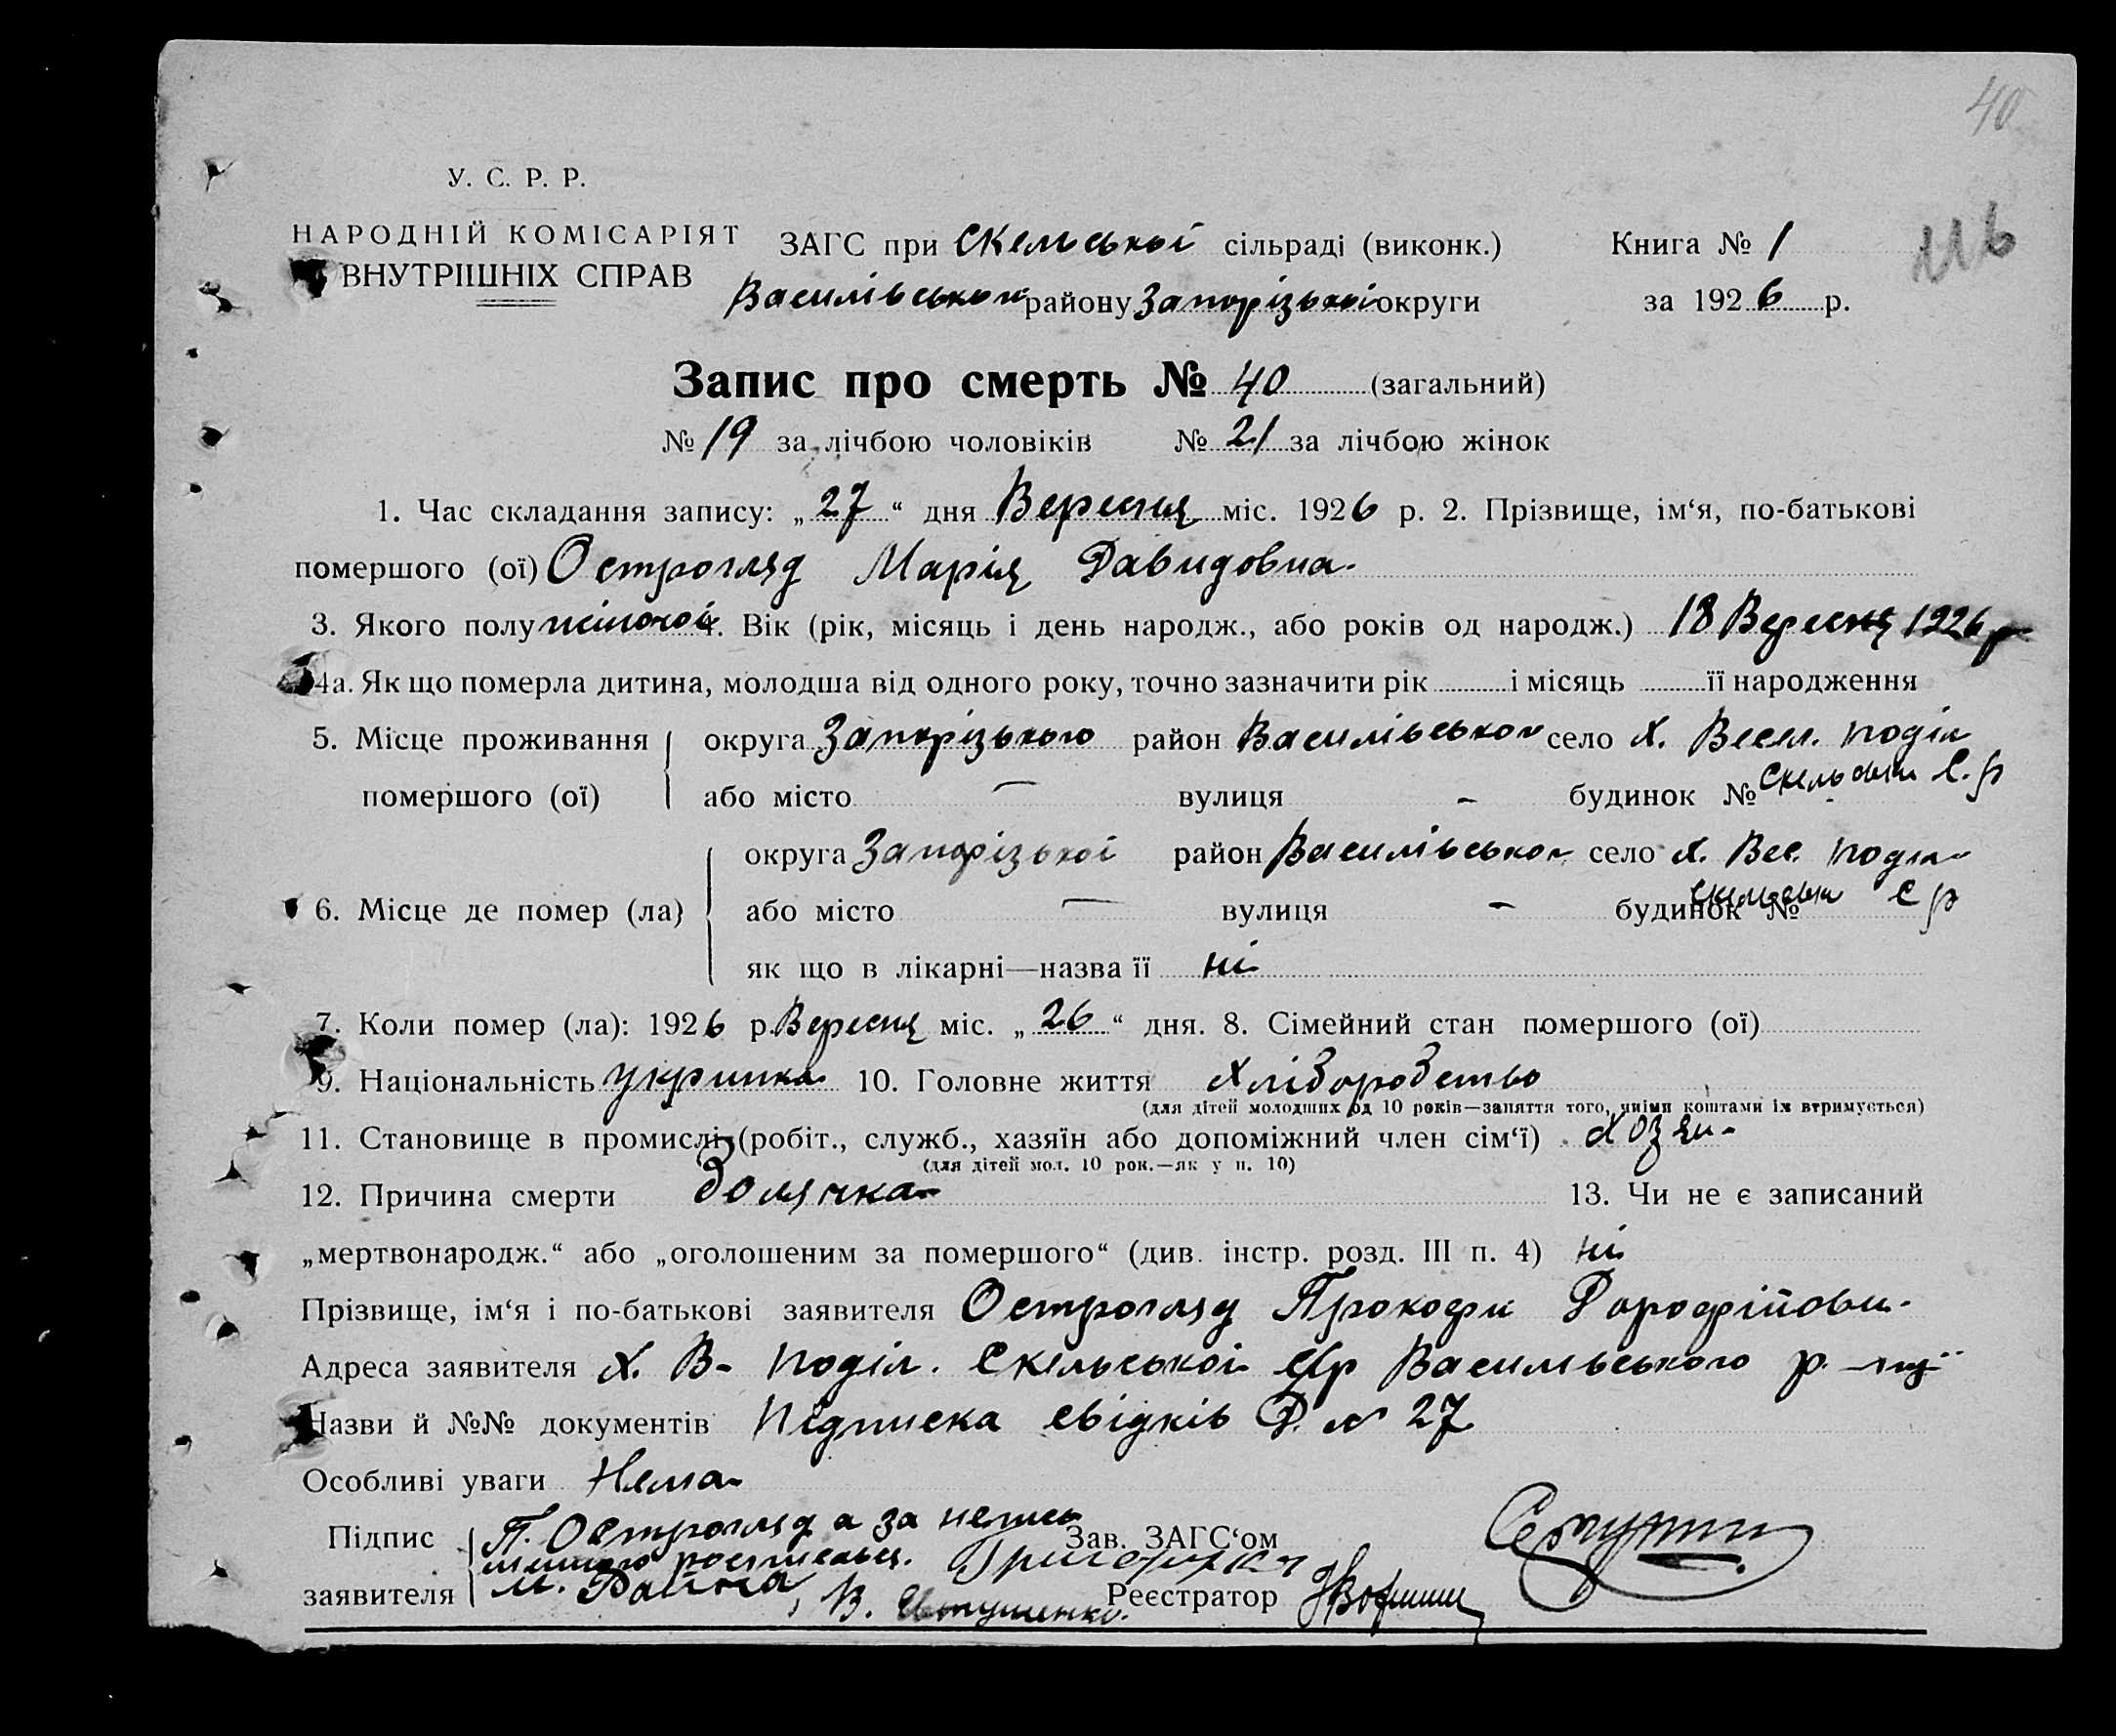 40
У. С. Р. Р.
НАРОДНІЙ КОМІСАРІЯТ
ВНУТРІШНІХ СПРАВ
ЗАГС при Скельської сільраді (виконк.)
Василівського району Запорізької округи
Книга № 1
за 1926 р.
Запис про смерть № 40 (загальний)
№ 19 за лічбою чоловіків № 21 за лічбою жінок
1. Час складання запису: „27“ дня Вересня міс. 1926 р. 2. Прізвище, ім‘я, по-батькові
помершого (ої) Острогляд Марія Давидовна.
3. Якого полу жіночої 4. Вік (рік, місяць і день народж., або років од народж.) 18 Вересня 1926 р
4а. Як що померла дитина, молодша від одного року, точно зазначити рік і місяць її народження
5. Місце проживання округа Запорізького район Василівського село х. Весел. поділ
Скельськи С. р
помершого (ої) або місто — вулиця - будинок № -
округа Запорізької район Василівського село х. Вес. поділ
Скельськи С р
6. Місце де помер (ла) або місто — вулиця - будинок №
як що в лікарні—назва її ні
7. Коли помер (ла): 1926 р. Вересня міс. „26“ дня. 8. Сімейний стан помершого (ої)
9. Національність укринка 10. Головне життя хліборобство
(для дітей молодших од 10 років—заняття того, чиїми коштами їх втримується)
11. Становище в промислі (робіт., служб., хазяїн або допоміжний член сім‘ї) хозяи-
(для дітей мол. 10 рок.—як у п. 10)
12. Причина смерти болячка 13. Чи не є записаний
„мертвонародж.“ або „оголошеним за помершого“ (див. інстр. розд. III п. 4) ні
Прізвище, ім‘я і по-батькові заявителя Острогляд Прокофи Дорофійови.
Адреса заявителя х. В- поділ. Скельської с/р Васильвського р.
Назви й №№ документів Підписка свідків Д. № 27
Особливі уваги Нема
Підпис П. Острогляд а за непись
менного росписався.
Зав. ЗАГС‘ом
заявителя М. Дайнека, В. Євтушенко.
Реєстратор